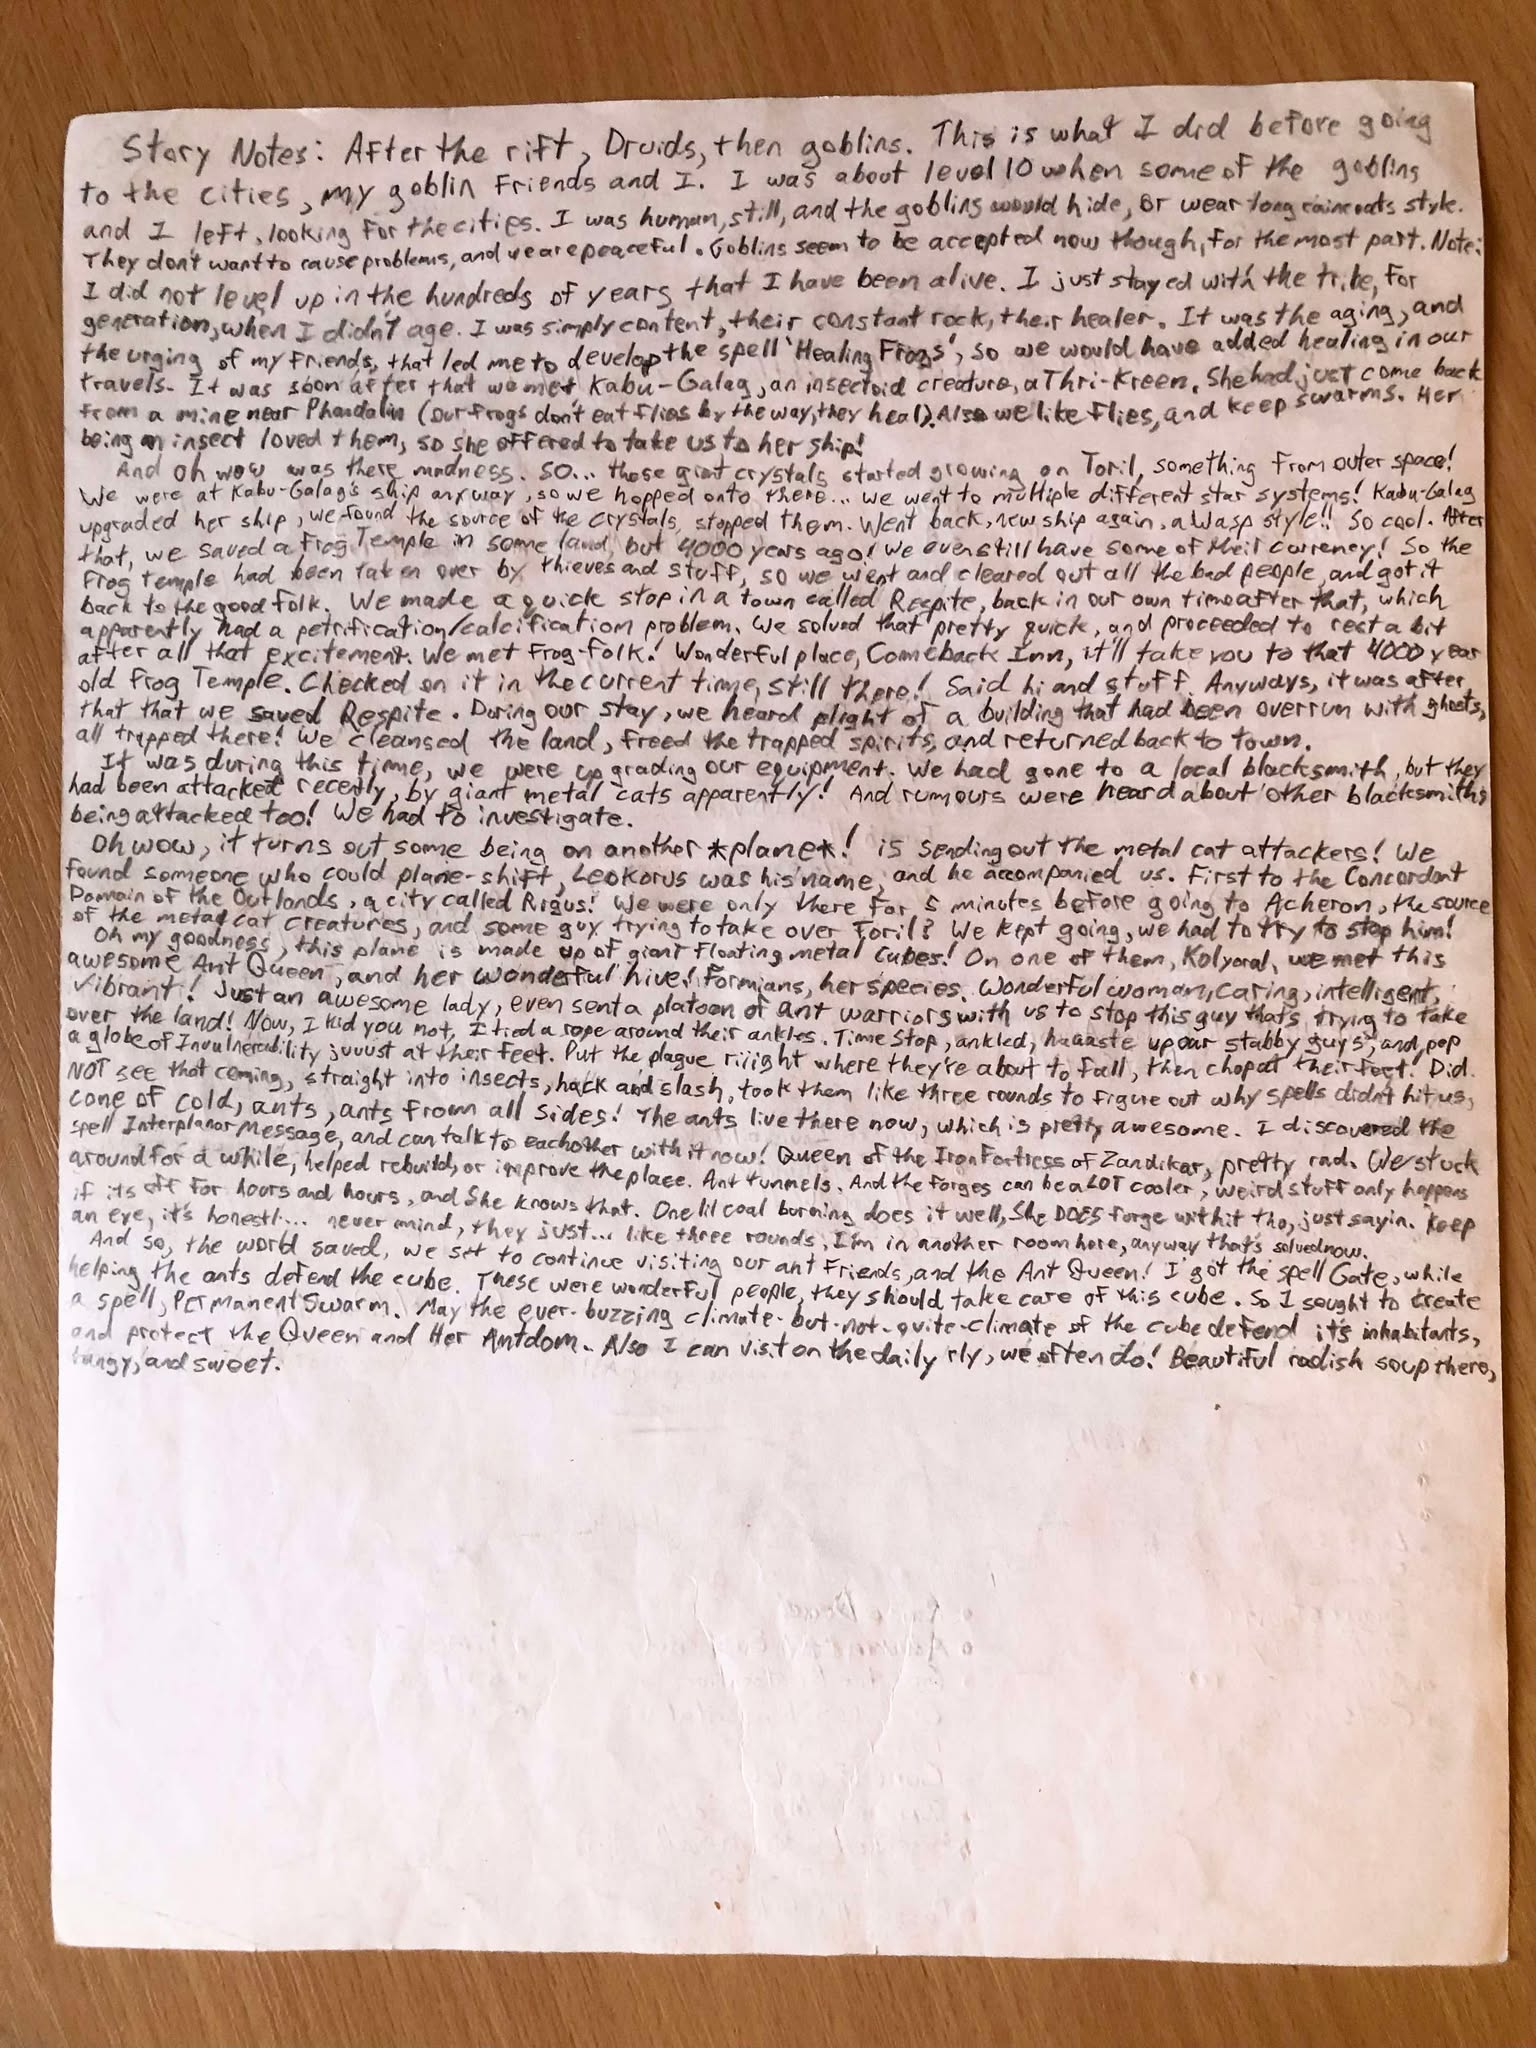 Story Notes: After the rift, Druids, then goblins. This is what I did before going
to the cities, my goblin friends and I. I was about level 10 when some of the goblins
and I left, looking for the cities. I was human, still, and the goblins would hide, or wear long raincoats style.
They don't want to cause problems, and we are peaceful. Goblins seem to be accepted now though, for the most part. Note:
I did not level up in the hundreds of years that I have been alive. I just stayed with the tribe, for
generation, when I didn't age. I was simply content, their constant rock, their healer. It was the aging, and
the urging of my friends, that led me to develop the spell 'Healing Frogs', so we would have added healing in our
travels. It was soon after that we met Kabu-Galag, an insectoid creature, a Thri-Kreen. She had just come back
from a mine near Phandalin (our frogs don't eat flies by the way, they heal). Also we like flies, and keep swarms. Her
being an insect loved them, so she offered to take us to her ship!
And oh wow was there madness. So... those giant crystals started growing on Toril, something from outer space!
We were at Kabu-Galag's ship anyway, so we hopped onto there... we went to multiple different star systems! Kabu-Galag
upgraded her ship, we found the source of the crystals, stopped them. Went back, new ship again, a Wasp style!! So cool. After
that, we saved a Frog Temple in some land, but 4000 years ago! We even still have some of their currency! So the
Frog Temple had been taken over by thieves and stuff, so we went and cleared out all the bad people, and got it
back to the good folk. We made a quick stop in a town called Respite, back in our own time after that, which
apparently had a petrification/calcification problem. We solved that pretty quick, and proceeded to rest a bit
after all that excitement. We met Frog-folk! Wonderful place, Comeback Inn, it'll take you to that 4000 year
old Frog Temple. Checked on it in the current time, still there! Said hi and stuff. Anyways, it was after
that that we saved Respite. During our stay, we heard plight of a building that had been overrun with ghosts,
all trapped there! We cleansed the land, freed the trapped spirits, and returned back to town.
It was during this time, we were upgrading our equipment. We had gone to a local blacksmith, but they
had been attacked recently, by giant metal cats apparently! And rumours were heard about other blacksmiths
being attacked too! We had to investigate.
Oh wow, it turns out some being on another *plane*! is sending out the metal cat attackers! We
found someone who could plane-shift, Leokorus was his name, and he accompanied us. First to the Concordant
Domain of the Outlands, a city called Rigus! We were only there for 5 minutes before going to Acheron, the source
of the metal cat creatures, and some guy trying to take over Toril? We kept going, we had to try to stop him!
Oh my goodness, this plane is made up of giant floating metal cubes! On one of them, Kolyoral, we met this
awesome Ant Queen, and her wonderful hive! Formians, her species. Wonderful woman, caring, intelligent,
vibrant! Just an awesome lady, even sent a platoon of ant warriors with us to stop this guy thats trying to take
over the land! Now, I kid you not, I tied a rope around their ankles. Time Stop, ankled, haaaste up our stabby guys, and pop
a globe of Invulnerability juuust at their feet. Put the plague riiight where they're about to fall, then chop at their feet! Did
NOT see that coming, straight into insects, hack and slash, took them like three rounds to figure out why spells didn't hit us,
cone of cold, ants, ants from all sides! The ants live there now, which is pretty awesome. I discovered the
spell Interplanar Message, and can talk to eachother with it now! Queen of the Iron Fortress of Zandikar, pretty rad. We stuck
around for a while, helped rebuild, or improve the place. Ant tunnels. And the forges can be a LOT cooler, weird stuff only happens
if its off for hours and hours, and She knows that. One lil coal burning does it well, She DOES forge with it tho, just sayin. Keep
an eye, it's honestl... never mind, they just... like three rounds, I'm in another room here, anyway that's solved now.
And so, the world saved, we set to continue visiting our ant friends, and the Ant Queen! I got the spell Gate, while
helping the ants defend the cube. These were wonderful people, they should take care of this cube. So I sought to create
a spell, Permanent Swarm. May the ever-buzzing climate-but-not-quite-climate of the cube defend it's inhabitants,
and protect the Queen and Her Antdom. Also I can visit on the daily rly, we often do! Beautiful radish soup there,
tangy, and sweet.